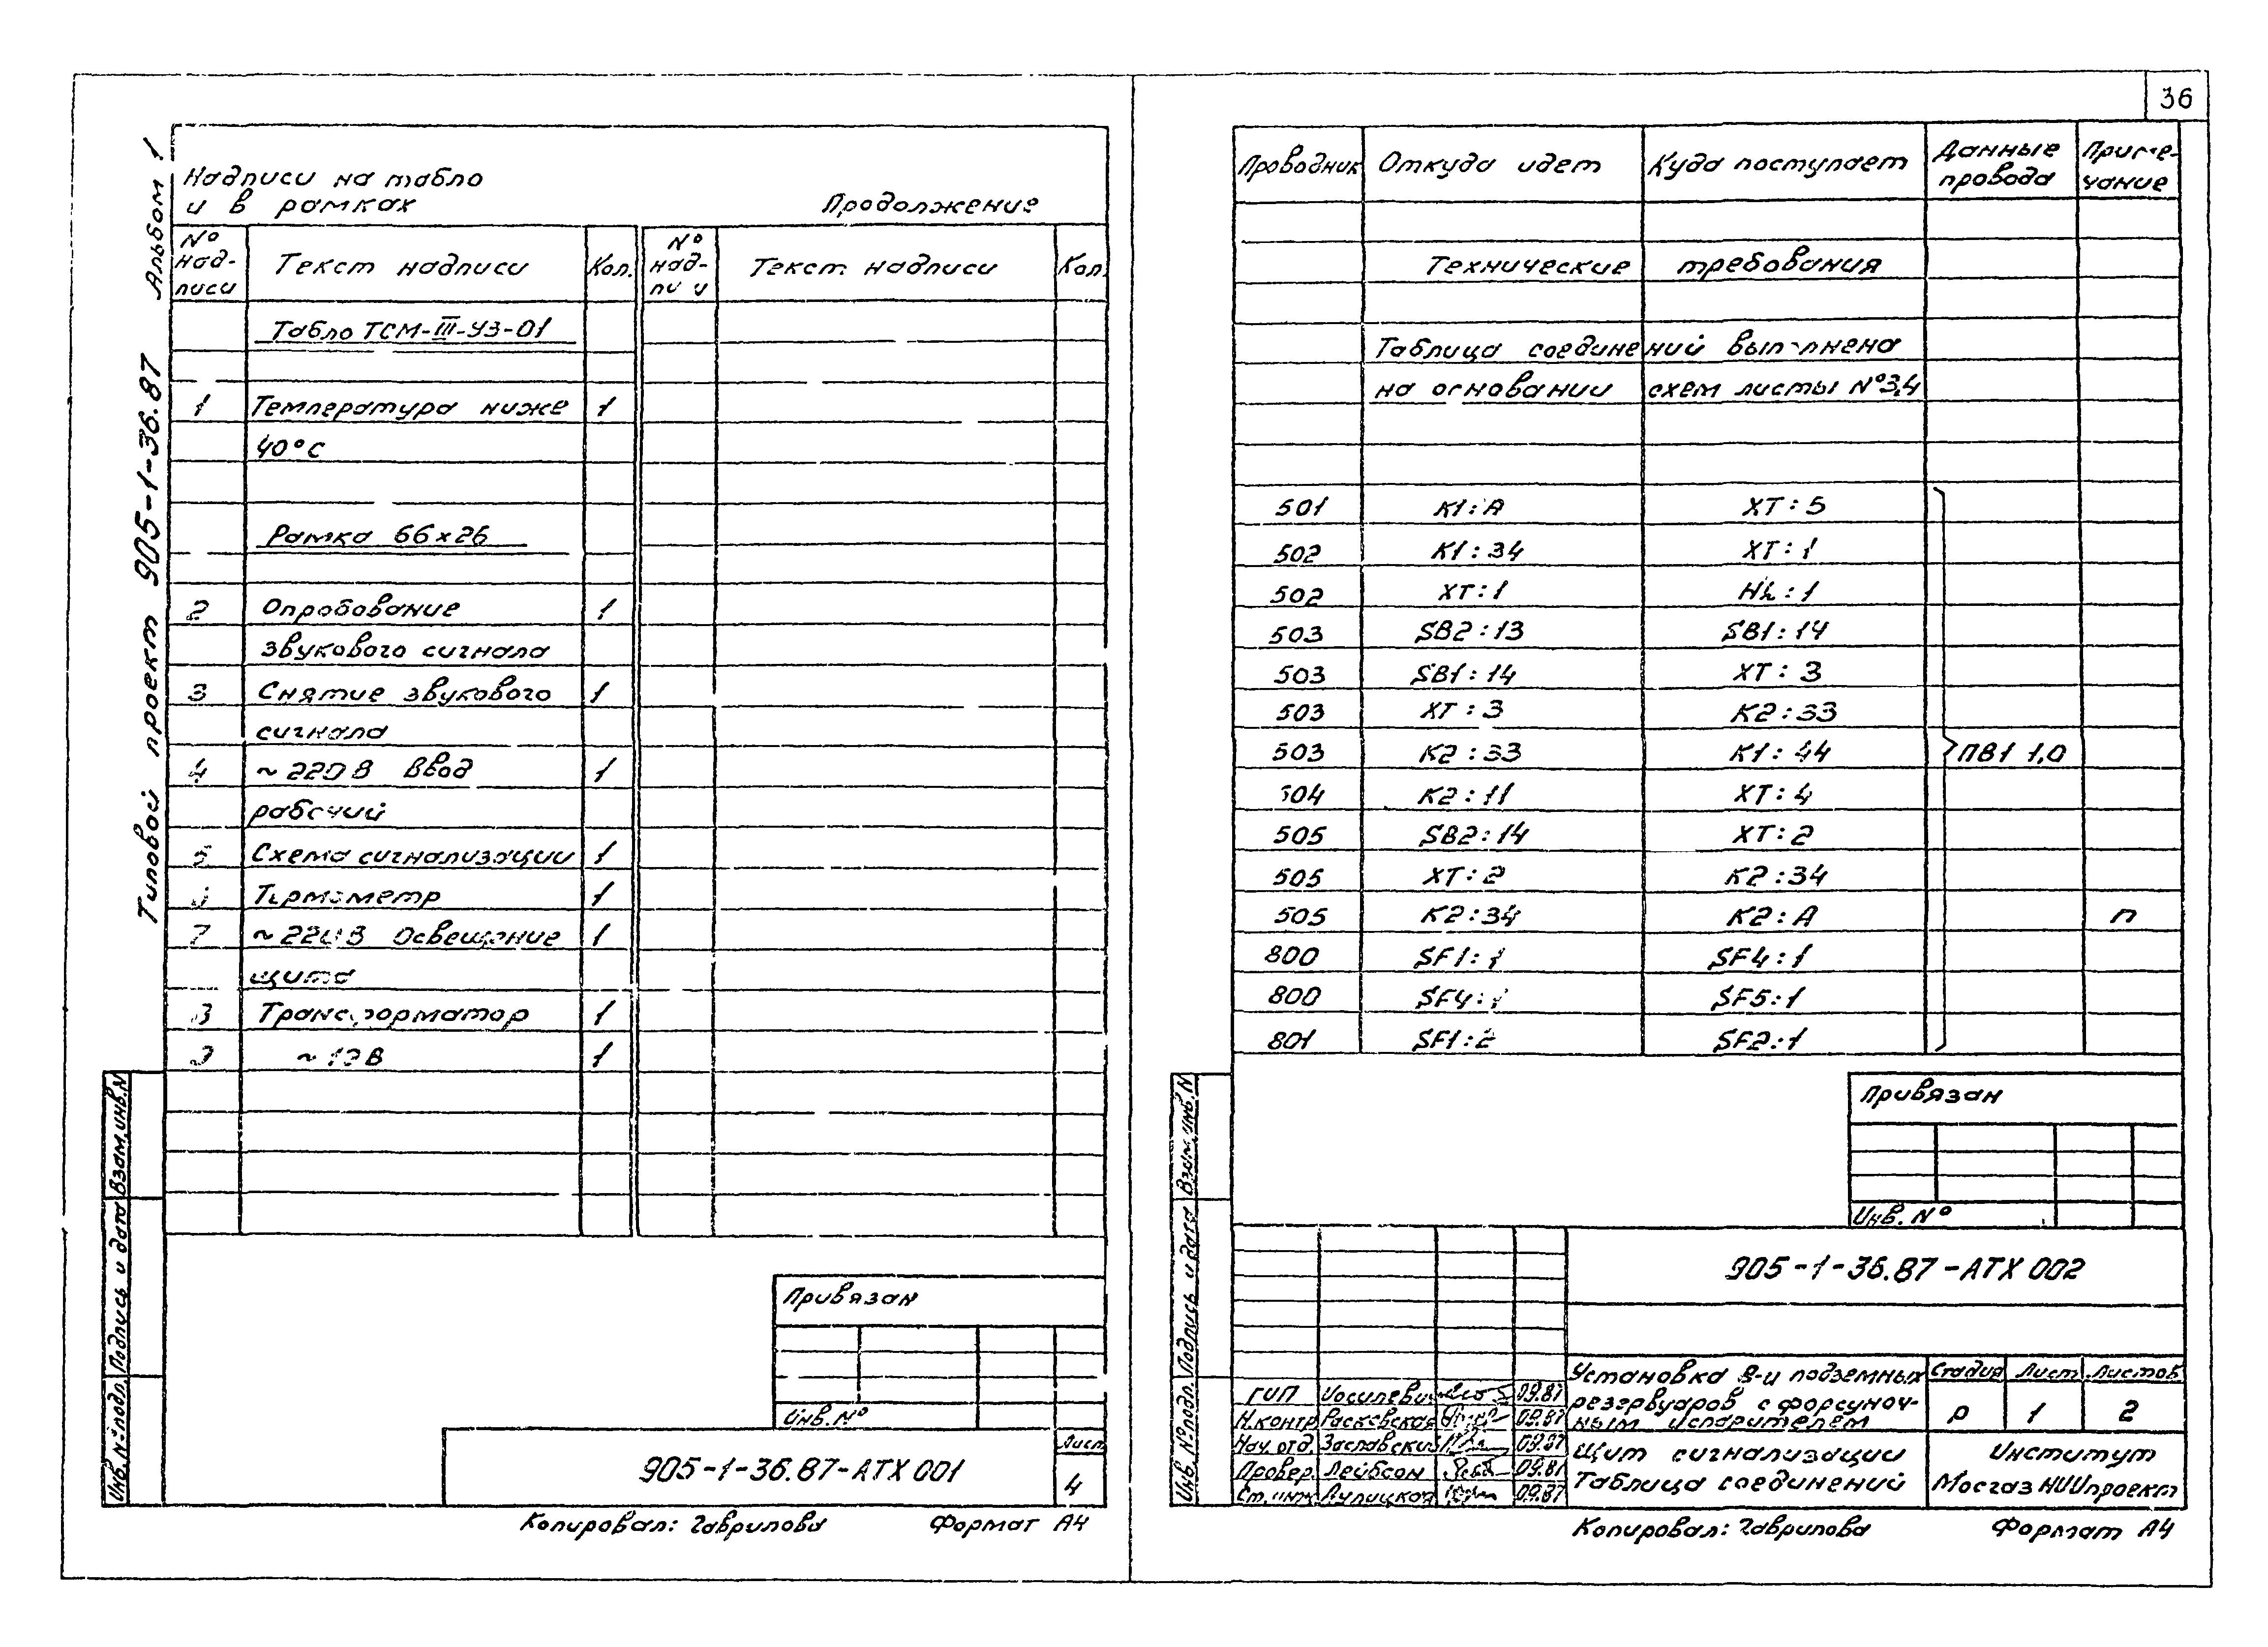 36
Альбом 1
Типовой проект 905-1-36.87
Надписи на табло
и в рамках
Продолжение
№ надписи Текст надписи Кол. № Текст надписи Кол.
Табло ТСМ-III-УЗ-01
1 Температура ниже 1
40°С
Рамка 66х26
2 Опробование 1
звукового сигнала
3 Снятие звукового 1
сигнала
4 ~220В Ввод 1
рабочий
5 Схема сигнализации 1
Термометр 1
7 ~220В Освещение 1
щита
8 Трансформатор 1
1
Привязан
Инв. №
905-1-36.87-АТХ 001
Лист
4
Инв. № подл. Подпись и дата Взам. инв. N
Копировал: Гаврилова Формат А4
Проводник Откуда идет Куда поступает Данные провода Примечание
Технические требования
Таблица соединений выполнена
на основании схем листы №3,4
501 К1:А ХТ:5
502 К1:34 ХТ:1
502 ХТ:1 HL:1
503 SB2:13 SB1:14
503 SB1:14 ХТ:3
503 ХТ:3 К2:33
503 К2:33 К1:44 ПВ1 1,0
504 К2:11 ХТ:4
505 SB2:14 ХТ:2
505 ХТ:2 К2:34
505 К2:34 К2:А п
800 SF1:1 SF4:1
800 SF4:1 SF5:1
801 SF1:2 SF2:1
Привязан
Инв. №
905-1-36.87-АТХ 002
Установка 8-и подземных
резервуаров с форсуноч-
ным испарителем
Стадия Лист Листов
Р 1 2
ГИП Иосилевич 09.87
Н.контр Расковская 09.87
Нач. отд. Заславский 09.87
Провер. Лейбсон 09.87
Ст. инж. 09.87
Щит сигнализации
Таблица соединений
Институт
МосгазНИИпроект
Инв. № подл. Подпись и дата Взам. инв. N
Копировал: Гаврилова Формат А4